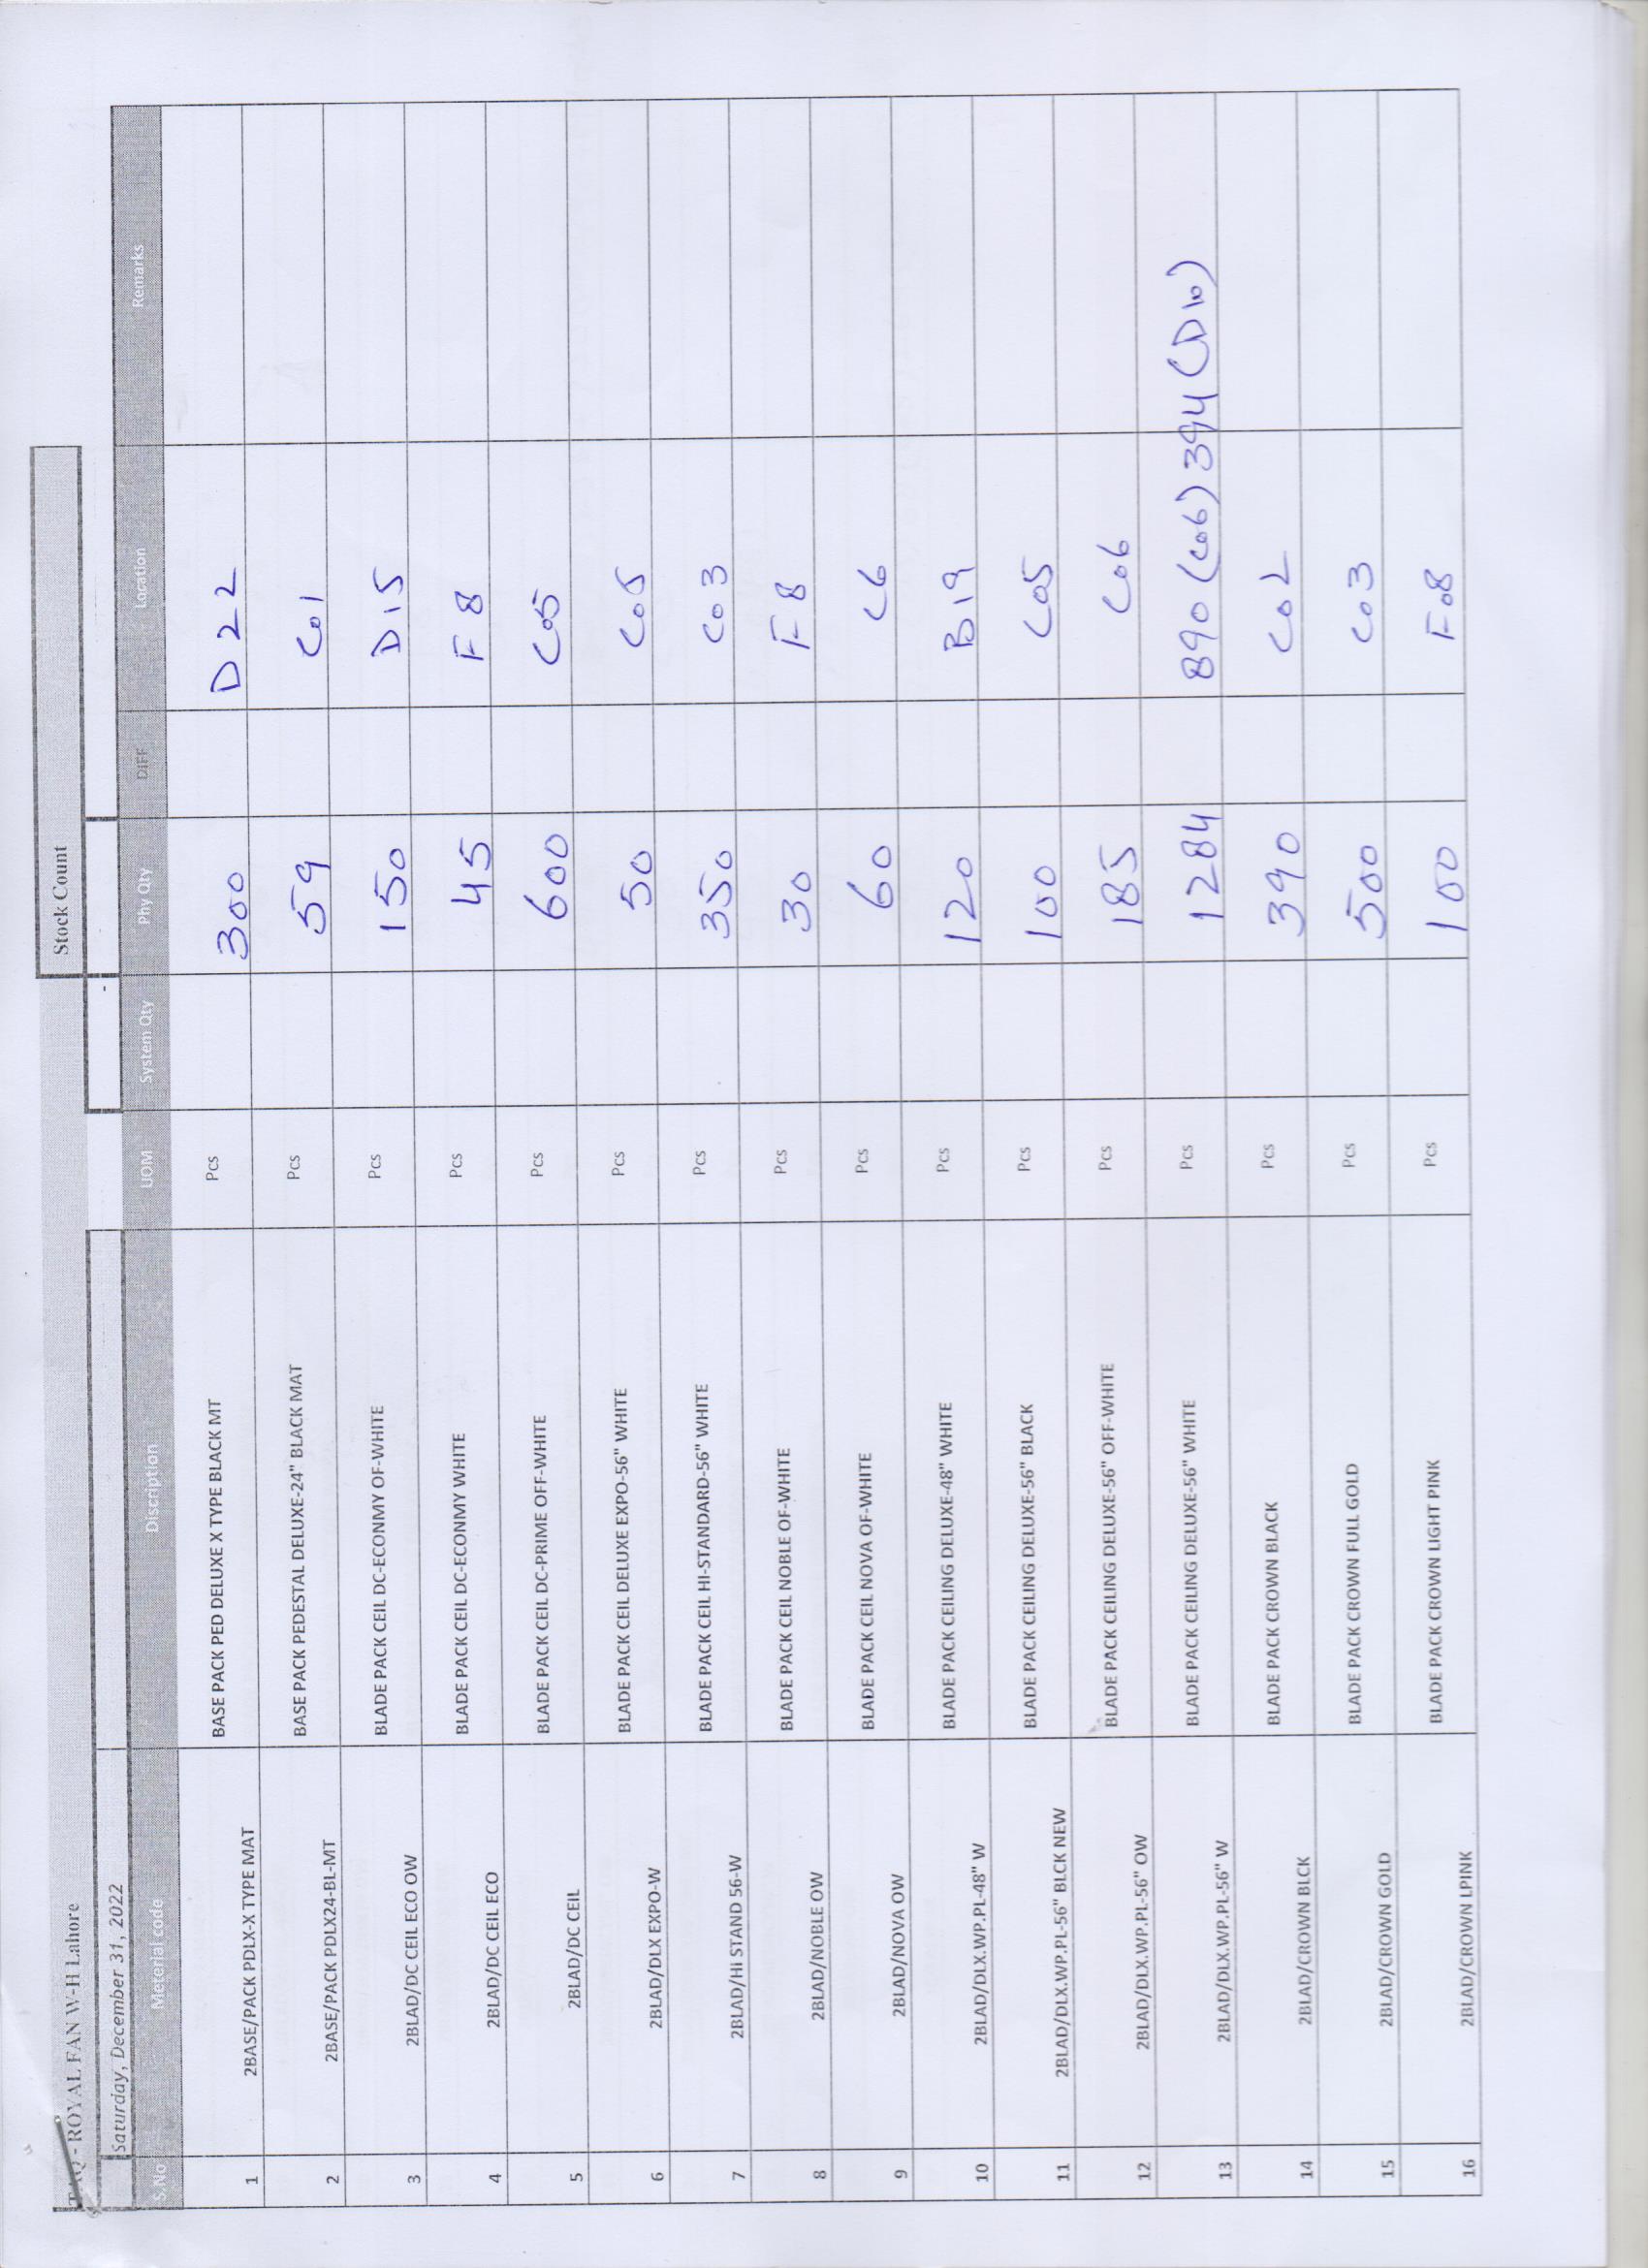 TAQ - ROYAL FAN W-H Lahore
Stock Count
Saturday, December 31, 2022
-
S.No Meterial code Discription UOM System Qty Phy Qty DIFF Location Remarks
1 2BASE/PACK PDLX-X TYPE MAT BASE PACK PED DELUXE X TYPE BLACK MT Pcs 300 D22
2 2BASE/PACK PDLX24-BL-MT BASE PACK PEDESTAL DELUXE-24" BLACK MAT Pcs 59 C01
3 2BLAD/DC CEIL ECO OW BLADE PACK CEIL DC-ECONMY OF-WHITE Pcs 150 D15
4 2BLAD/DC CEIL ECO BLADE PACK CEIL DC-ECONMY WHITE Pcs 45 F8
5 2BLAD/DC CEIL BLADE PACK CEIL DC-PRIME OFF-WHITE Pcs 600 C05
6 2BLAD/DLX EXPO-W BLADE PACK CEIL DELUXE EXPO-56" WHITE Pcs 50 C05
7 2BLAD/Hi STAND 56-W BLADE PACK CEIL HI-STANDARD-56" WHITE Pcs 350 C03
8 2BLAD/NOBLE OW BLADE PACK CEIL NOBLE OF-WHITE Pcs 30 F8
9 2BLAD/NOVA OW BLADE PACK CEIL NOVA OF-WHITE Pcs 60 C6
10 2BLAD/DLX.WP.PL-48" W BLADE PACK CEILING DELUXE-48" WHITE Pcs 120 B19
11 2BLAD/DLX.WP.PL-56" BLCK NEW BLADE PACK CEILING DELUXE-56" BLACK Pcs 100 C05
12 2BLAD/DLX.WP.PL-56" OW BLADE PACK CEILING DELUXE-56" OFF-WHITE Pcs 185 C06
13 2BLAD/DLX.WP.PL-56" W BLADE PACK CEILING DELUXE-56" WHITE Pcs 1284 890 (C06) 394 (D10)
14 2BLAD/CROWN BLCK BLADE PACK CROWN BLACK Pcs 390 C02
15 2BLAD/CROWN GOLD BLADE PACK CROWN FULL GOLD Pcs 500 C03
16 2BLAD/CROWN LPINK BLADE PACK CROWN LIGHT PINK Pcs 100 F08